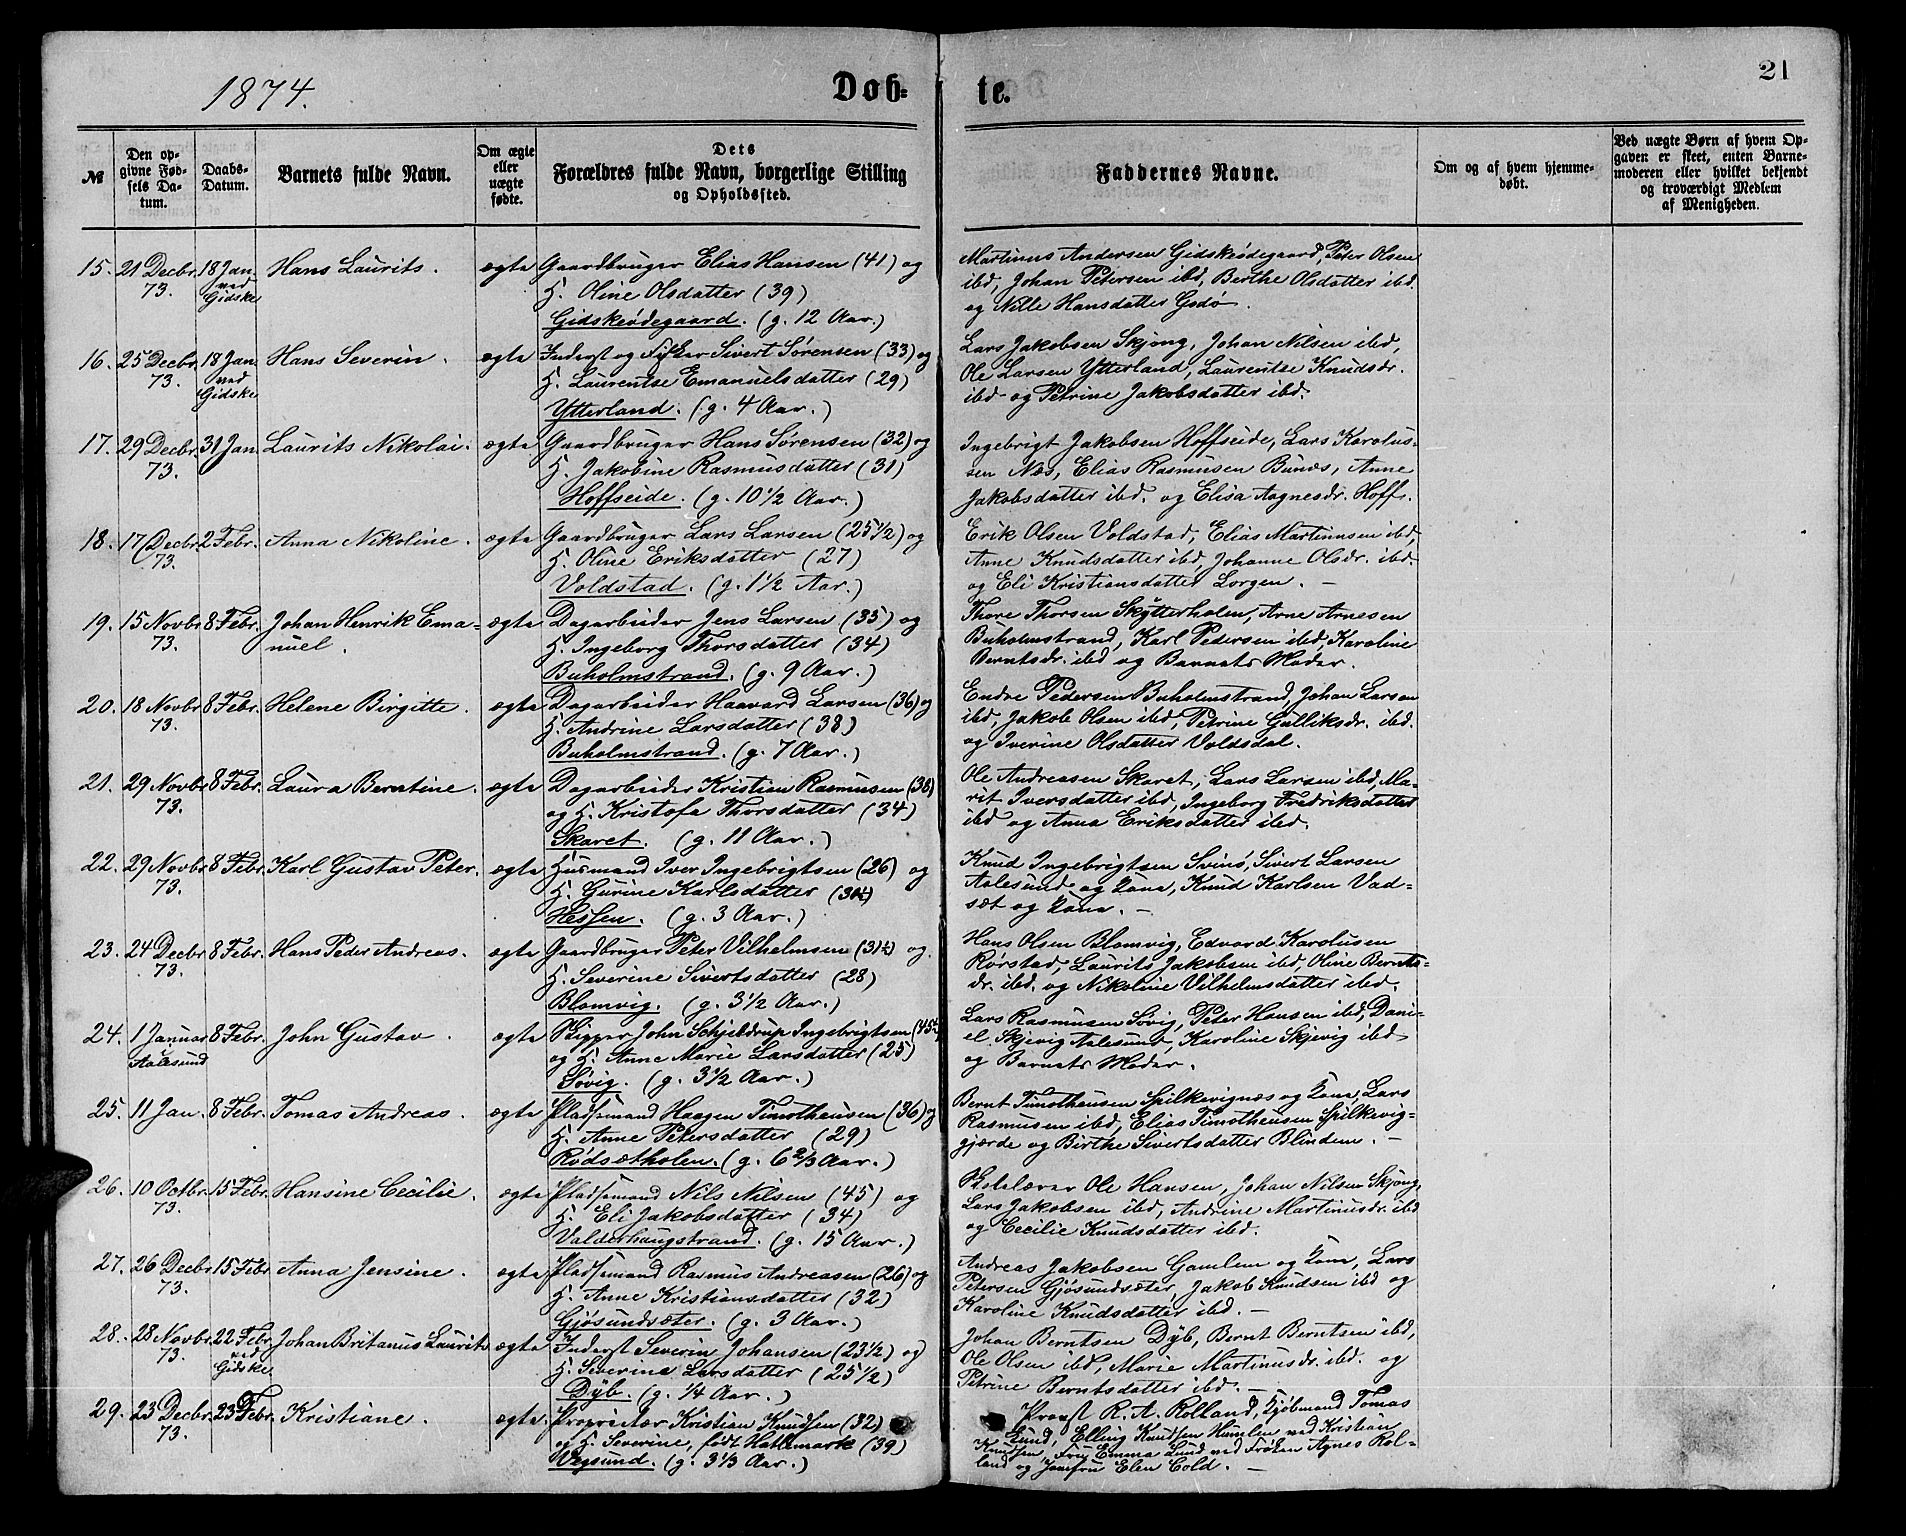 1874.
Døb-
te.
21
№
Den op-
givne Fød-
sels Da-
tum.
Daabs-
Datum.
Barnets fulde Navn.
Om ægte
eller
uægte
fødte.
Dets
Forældres fulde Navn, borgerlige Stilling
og Opholdssted.
Faddernes Navne.
Om og af hvem hjemme-
døbt.
Ved uægte Børn af hvem Op-
gaven er skeet, enten Barne-
moderen eller hvilket bekjendt
og troværdigt Medlem
af Menigheden.
15. 21 Decbr. 18 Jan. Hans Laurits. ægte Gaardbruger Elias Hansen (41) og
73. ved H. Oline Olsdatter (39)
Gidske Gidskeødegaard. (g. 12 Aar.)
Martinus Andersen Gidskødegaard, Peter Olsen
ibd, Johan Petersen ibd, Berthe Olsdatter ibd.
og Nille Hansdatter Godø.
16. 25 Decbr. 18 Jan. Hans Severin. ægte Inderst og Fisker Sivert Sørensen (33) og
73. ved H. Laurentse Emanuelsdatter (29)
Gidske Ytterland. (g. 4 Aar.)
Lars Jakobsen Skjong, Johan Nilsen ibd,
Ole Larsen Ytterland, Laurentse Knudsdr.
ibd og Petrine Jakobsdatter ibd.
17. 29 Decbr. 31 Jan. Laurits Nikolai. ægte Gaardbruger Hans Sørensen (32) og
73. H. Jakobine Rasmusdatter (31)
Hoffseide. (g. 10 1/2 Aar.)
Ingebrigt Jakobsen Hoffseide, Lars Karolus-
sen Næs, Elias Rasmusen Bunæs, Anne
Jakobsdatter ibd. og Elisa Aagnesdr. Hoff.
18. 17 Decbr. 2 Febr. Anna Nikoline. ægte Gaardbruger Lars Larsen (25 1/2) og
73. H. Oline Eriksdatter (27)
Voldstad. (g. 1 1/2 Aar.)
Erik Olsen Voldstad, Elias Martinusen ibd,
Anne Knudsdatter ibd, Johanne Olsdr. ibd.
og Eli Kristiansdatter Lorgen. —
19. 15 Novbr. 8 Febr. Johan Henrik Ema- ægte Dagarbeider Jens Larsen (35) og
73. nuel. H. Ingeborg Thorsdatter (34)
Buholmstrand. (g. 9 Aar.)
Thore Thorsen Skytterholen, Arne Arnesen
Buholmstrand, Karl Pedersen ibd, Karoline
Berntsdr. ibd og Barnets Moder.
20. 18 Novbr. 8 Febr. Helene Birgitte. ægte Dagarbeider Haavard Larsen (36) og
73. H. Andrine Larsdatter (38)
Buholmstrand. (g. 7 Aar.)
Endre Pedersen Buholmstrand, Johan Larsen
ibd, Jakob Olsen ibd, Petrine Gulliksdr. ibd.
og Iverine Olsdatter Voldsdal.
21. 29 Novbr. 8 Febr. Laura Berntine. ægte Dagarbeider Kristian Rasmusen (36)
73. og H. Kristofa Thorsdatter (34)
Skaret. (g. 11 Aar.)
Ole Andreasen Skaret, Lars Larsen ibd, Ma-
rit Iversdatter ibd, Ingeborg Fredriksdatter
ibd og Anna Eriksdatter ibd.
22. 29 Novbr. 8 Febr. Karl Gustav Peter. ægte Husmand Iver Ingebrigtsen (26) og
73. H. Gurine Karlsdatter
Hessen. (g. 3 Aar.)
Knud Ingebrigtsen Svinø, Sivert Larsen
Aalesund og Kone, Knud Karlsen Vad-
sæt og Kone. —
23. 24 Decbr. 8 Febr. Hans Peder Andreas. ægte Gaardbruger Peter Vilhelmsen (31½) og
73. H. Severine Sivertsdatter (28)
Blomvig. (g. 3 1/2 Aar.)
Hans Olsen Blomvig, Edvard Karolusen
Rørstad, Laurits Jakobsen ibd, Oline Bernts-
dr. ibd. og Nikoline Vilhelmsdatter ibd.
24. 1 Januar 8 Febr. John Gustav. ægte Skipper John Schjeldrup Ingebrigtsen
Aalesund og H. Anne Marie Larsdatter (25)
Søvig. (g. 3 1/2 Aar.)
Lars Rasmusen Søvig, Peter Hansen ibd, Dani-
el Skjevig Aalesund, Karoline Skjevig ibd
og Barnets Moder.
25. 11 Jan. 8 Febr. Tomas Andreas. ægte Pladsemand Haagen Timotheusen (36) og
H. Anne Petersdatter (29)
Rødsætholen. (g. 6 2/3 Aar.)
Bernt Timotheusen Spilkevignæs og Kone, Lars
Rasmusen ibd, Elias Timotheusen Spilkevig-
gjærde og Birthe Sivertsdatter Blindem. —
26. 10 Octbr. 15 Febr. Hansine Cecilie. ægte Pladsemand Nils Nilsen (45) og
73. H. Eli Jakobsdatter (34)
Valderhaugstrand. (g. 15 Aar.)
Skolelærer Ole Hansen, Johan Nilsen Skjong,
Lars Jakobsen ibd, Andrine Martinusdr. ibd
og Cecilie Knudsdatter ibd.
27. 26 Decbr. 15 Febr. Anna Jensine. ægte Pladsemand Rasmus Andreasen (26) og
73. H. Anne Kristiansdatter (32)
Gjøsundsæter. (g. 3 Aar.)
Andreas Jakobsen Gamlem og Kone, Lars
Petersen Gjøsundsæter, Jakob Knudsen ibd og
Karoline Knudsdatter ibd. —
28. 28 Novbr. 22 Febr. Johan Britanus Laurits ægte Inderst Severin Johansen (23 1/2) og
73. ved H. Severine Larsdatter (25 1/2)
Gidske. Dyb. (g. 1/4 Aar.)
Johan Berntsen Dyb, Bernt Berntsen ibd,
Ole Olsen ibd, Marie Martinusdr. ibd. og
Petrine Berntsdatter ibd. —
29. 23 Decbr. 23 Febr. Kristiane. ægte Proprietær Kristian Knudsen (32)
73. og H. Severine, født Hallemark (39)
Vegsund. (g. 3 1/3 Aar.)
Provst R. A. Rolland, Kjøbmand Tomas
Lund, Elling Knudsen Humlen ved Kristian
Knudsen, Fru Emma Lund ved Frøken Agnes Rol-
land og Jomfru Elen Cold. —